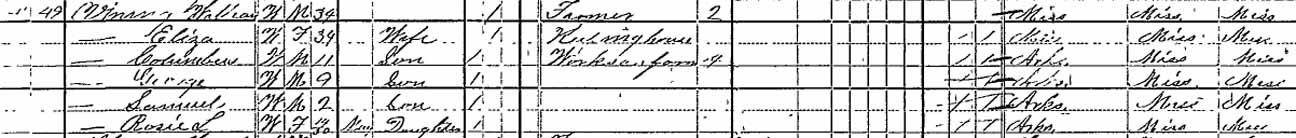 49 William W M 34 1 Farmer 2 Miss Miss Miss
— Eliza W F 34 Wife 1 Keepinghouse Miss Miss Miss
— Columbus W M 11 Son 1 Works on farm Arks. Miss Miss
— George W M 9 Son 1 Arks. Miss Miss
— Samuel W M 2 Son 1 Arks. Miss Miss
— Rosie L W F Daughter 1 Arks. Miss Miss